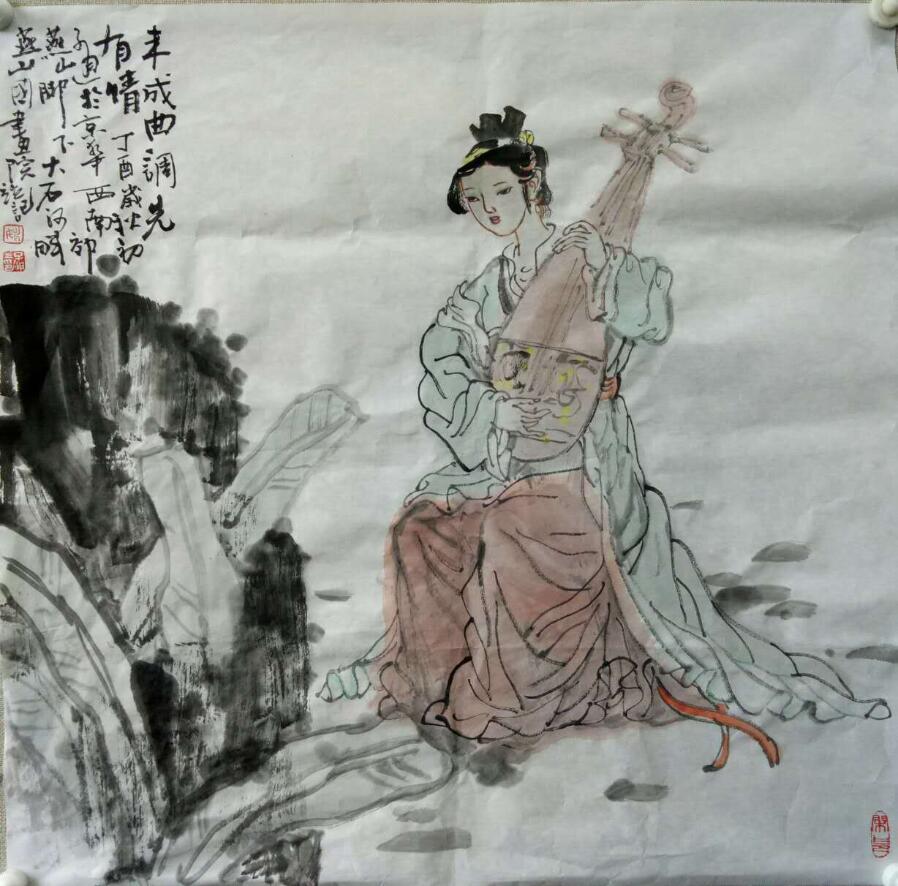 未成曲调先
有情 丁酉岁秋初
子通於京華西南部
燕山脚下大石河畔
燕山國畫院